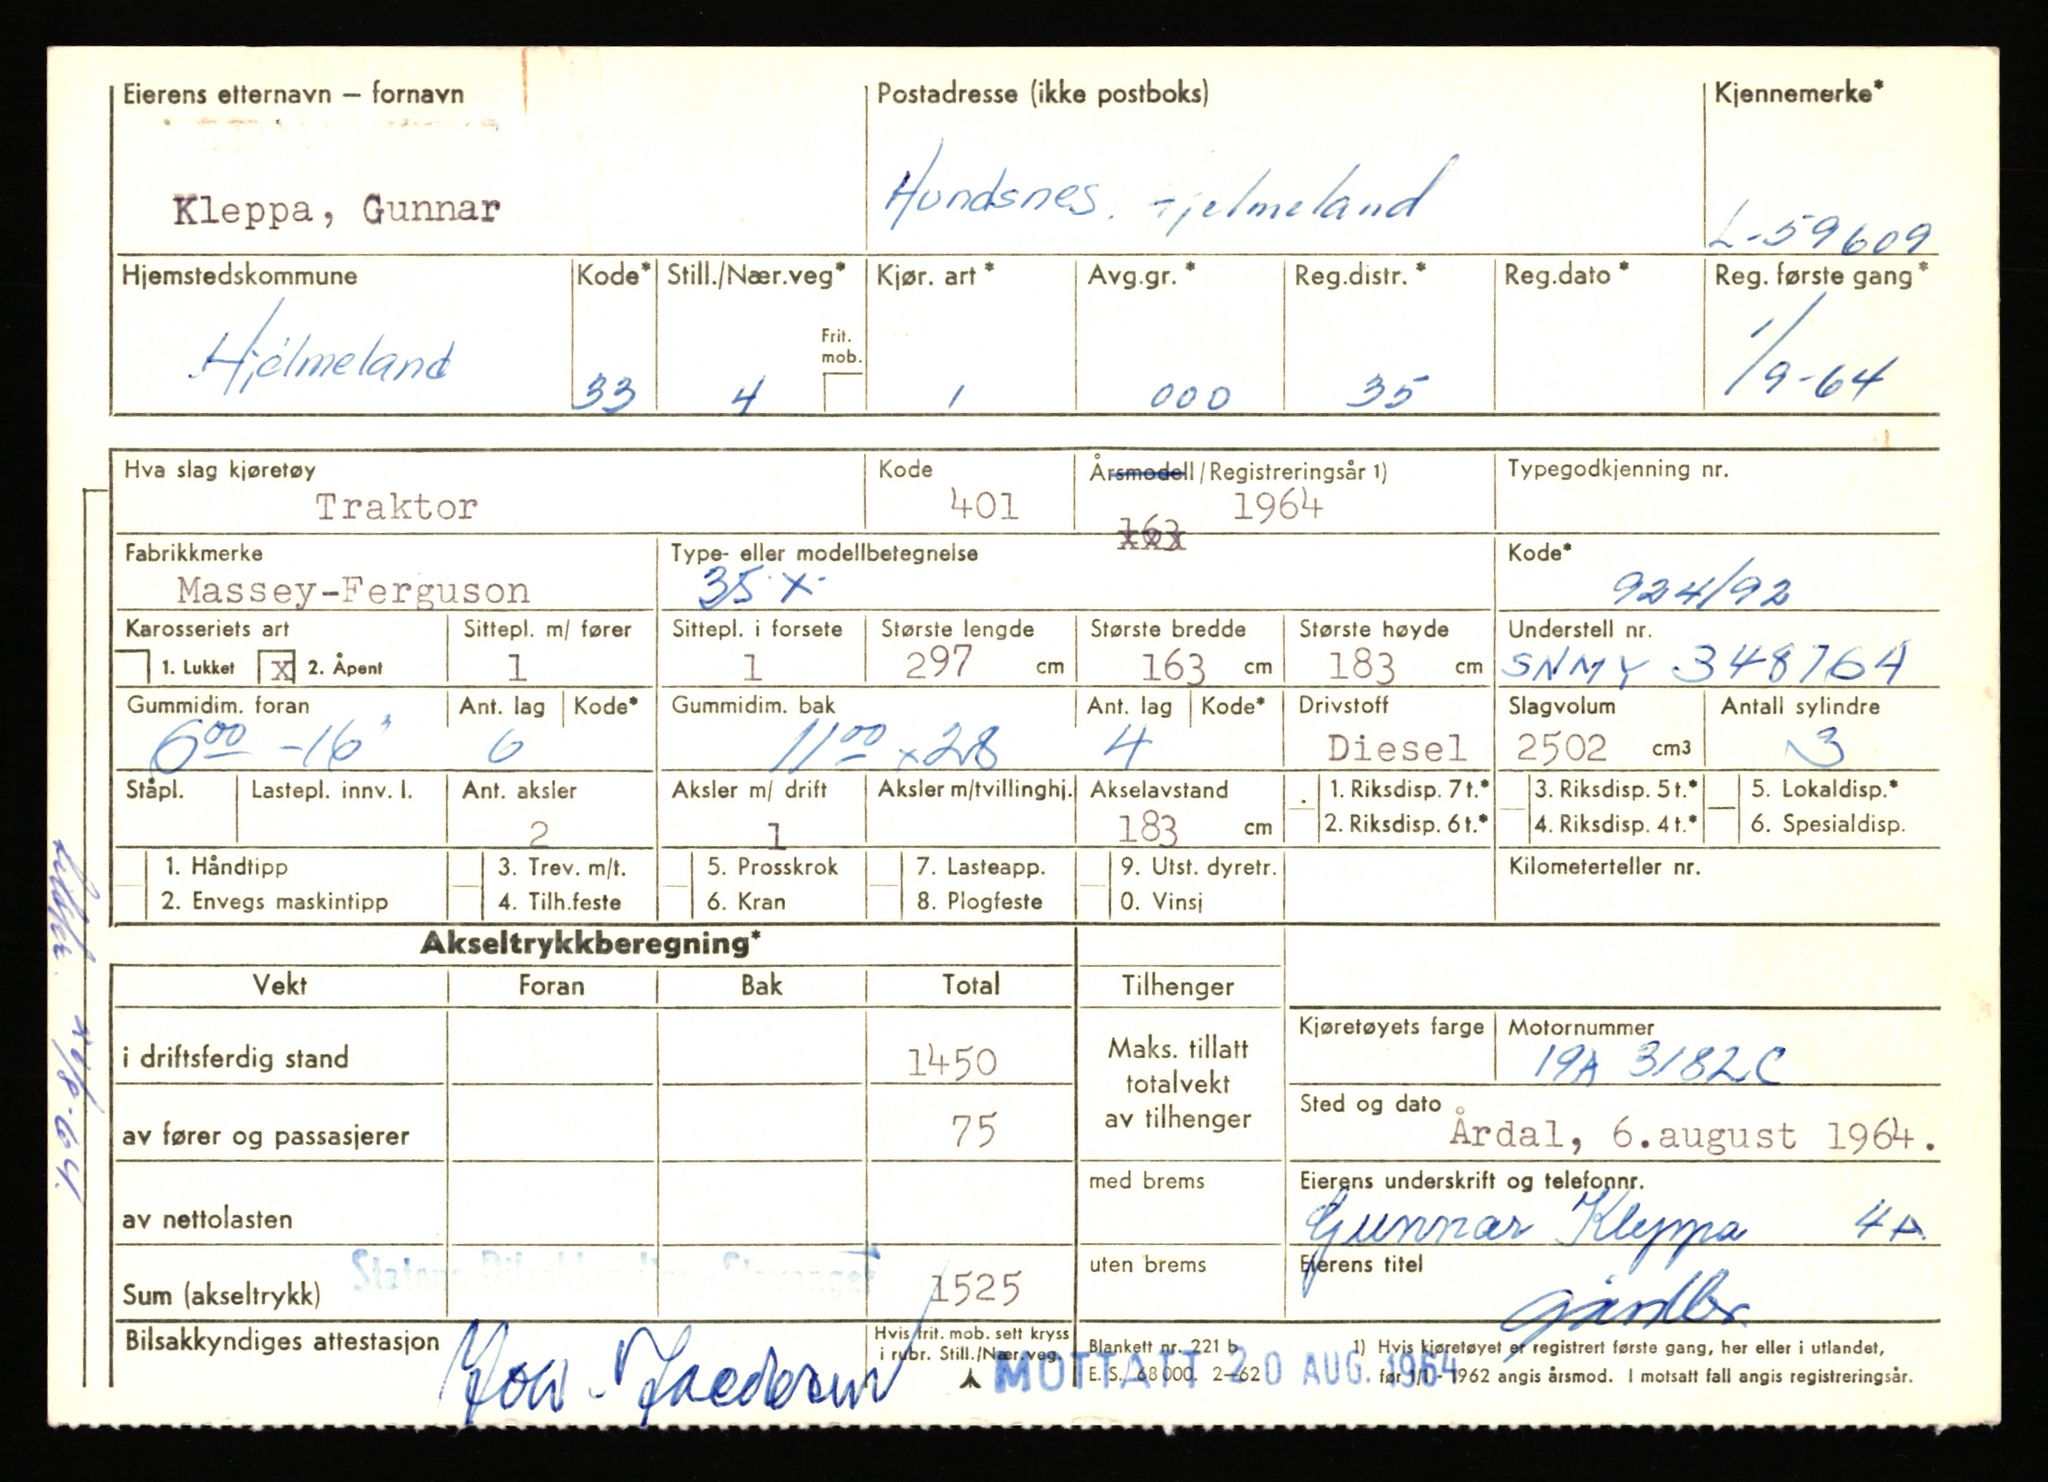 Eierens etternavn – fornavn
Kleppa, Gunnar
Postadresse (ikke postboks)
Hundsnes. Hjelmeland
Kjennemerke*
L-59609
Hjemstedskommune
Hjelmeland
Kode*
33
Still./Nær.veg*
4
Frit. mob.
Kjør. art *
1
Avg.gr. *
000
Reg.distr. *
35
Reg.dato *
Reg. første gang *
1/9-64
Hva slag kjøretøy
Traktor
Kode
401
Årsmodell/Registreringsår 1)
1964
163
xxx
Typegodkjenning nr.
Fabrikkmerke
Massey-Ferguson
Type- eller modellbetegnelse
35 X
Kode*
924/92
Karosseriets art
1. Lukket X 2. Åpent
Sittepl. m/ fører
1
Sittepl. i forsete
1
Største lengde
297 cm
Største bredde
163 cm
Største høyde
183 cm
Understell nr.
SNMY 348764
Gummidim. foran
6⁰⁰ -16"
Ant. lag
6
Kode*
Gummidim. bak
11⁰⁰ x 28
Ant. lag
4
Kode*
Drivstoff
Diesel
Slagvolum
2502 cm3
Antall sylindre
3
Ståpl.
Lastepl. innv. l.
Ant. aksler
2
Aksler m/ drift
1
Aksler m/tvillinghj.
Akselavstand
183 cm
1. Riksdisp. 7 t.*
2. Riksdisp. 6 t.*
3. Riksdisp. 5 t.*
4. Riksdisp. 4 t.*
5. Lokaldisp.*
6. Spesialdisp.
1. Håndtipp
2. Envegs maskintipp
3. Trev. m/t.
4. Tilh.feste
5. Prosskrok
6. Kran
7. Lasteapp.
8. Plogfeste
9. Utst. dyretr.
0. Vinsj
Kilometerteller nr.
Akseltrykkberegning*
Vekt Foran Bak Total
i driftsferdig stand 1450
av fører og passasjerer 75
av nettolasten
Sum (akseltrykk) 1525
Statens Bilsakkyndige Stavanger
Tilhenger
Maks. tillatt
totalvekt
av tilhenger
med brems
uten brems
Kjøretøyets farge
Motornummer
19A 3182C
Sted og dato
Årdal, 6.august 1964.
Eierens underskrift og telefonnr.
Gunnar Kleppa 4A
Eierens titel
Bilsakkyndiges attestasjon
Hvis frit. mob. sett kryss
i rubr. Still./Nær.veg.
Blankett nr. 221 b
E. S. 68 000. 2–62
MOTTATT 20 AUG. 1964
1) Hvis kjøretøyet er registrert første gang, her eller i utlandet,
før 1/1 - 1962 angis årsmod. I motsatt fall angis registreringsår.